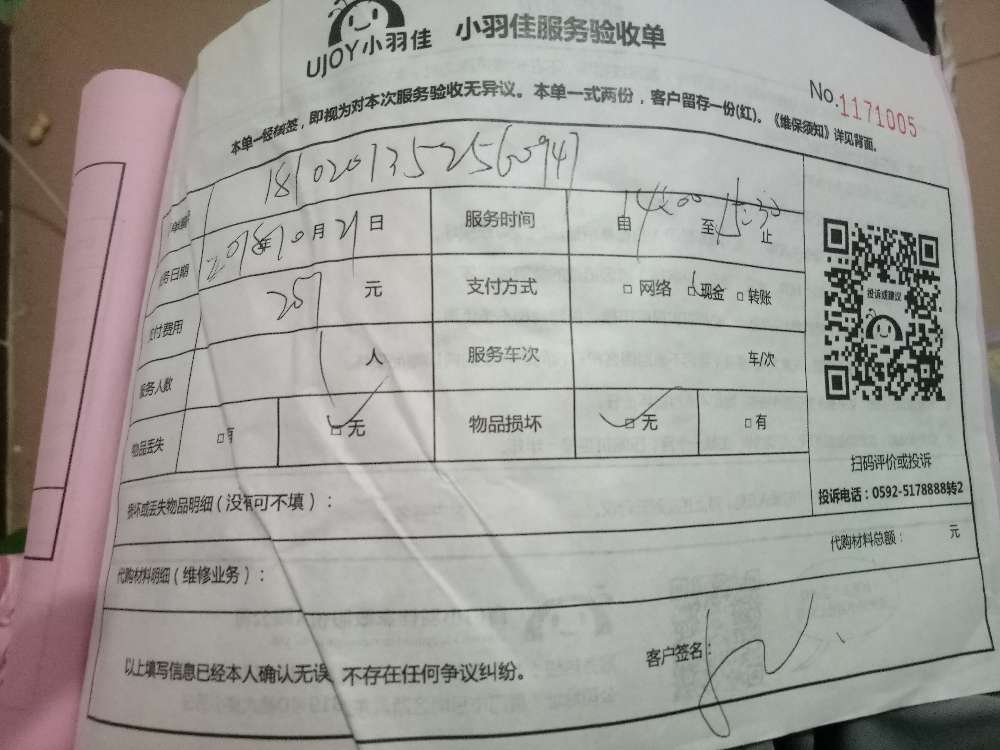 UJOY小羽佳 小羽佳服务验收单
No.1171005
本单一经签，即视为对本次服务验收无异议。本单一式两份，客户留存一份(红)。《维保须知》详见背面。
服务时间 自 14:00 至 15:30 止
务日期 2018年10月21日
付费用 元 支付方式 □网络 □现金 □转账
服务人数 1 人 服务车次 车/次
物品丢失 □有 □无 物品损坏 □无 □有
投诉或建议
扫码评价或投诉
投诉电话：0592-5178888转2
损坏或丢失物品明细（没有可不填）：
代购材料明细（维修业务）： 代购材料总额： 元
以上填写信息已经本人确认无误，不存在任何争议纠纷。 客户签名：